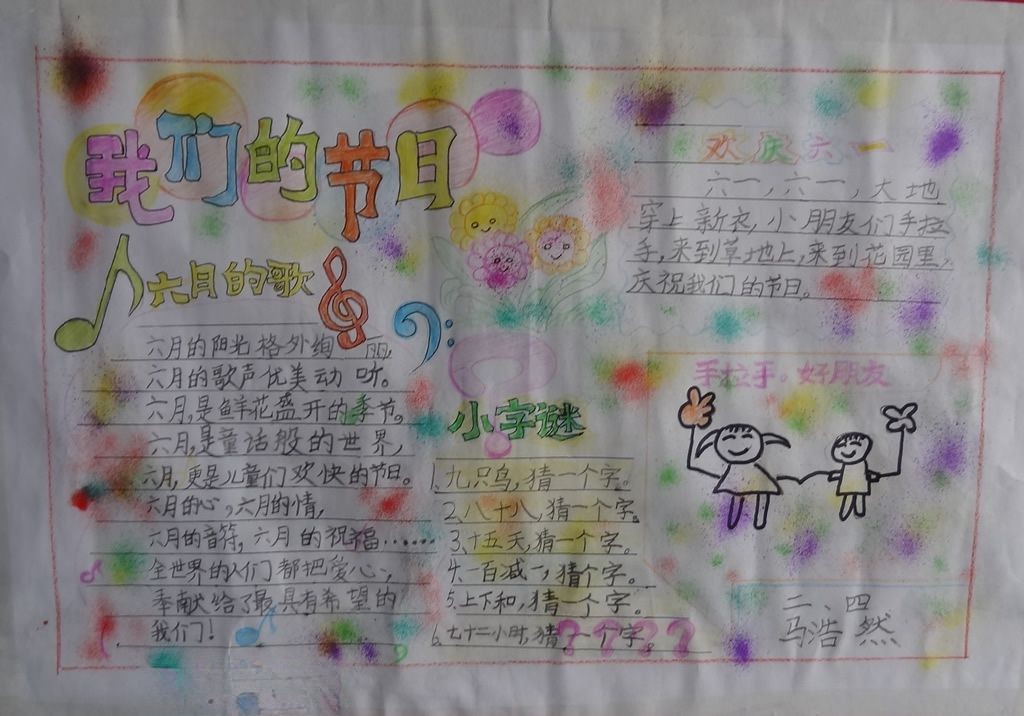 我们的节日
六月的歌
六月的阳光格外绚丽,
六月的歌声优美动听。
六月,是鲜花盛开的季节。
六月,是童话般的世界,
六月,更是儿童们欢快的节日。
六月的心,六月的情,
六月的音符,六月的祝福……
全世界的人们都把爱心,
奉献给了最具有希望的
我们!
小字谜
1.九只鸟,猜一个字。
2.八十八,猜一个字。
3.十五天,猜一个字。
4.一百减一,猜个字。
5.上下和,猜一个字。
6.七十二小时,猜一个字。
? ? ? ?
欢庆六一
六一,六一,大地
穿上新衣,小朋友们手拉
手,来到草地上,来到花园里,
庆祝我们的节日。
手拉手。好朋友
二、四
马浩然